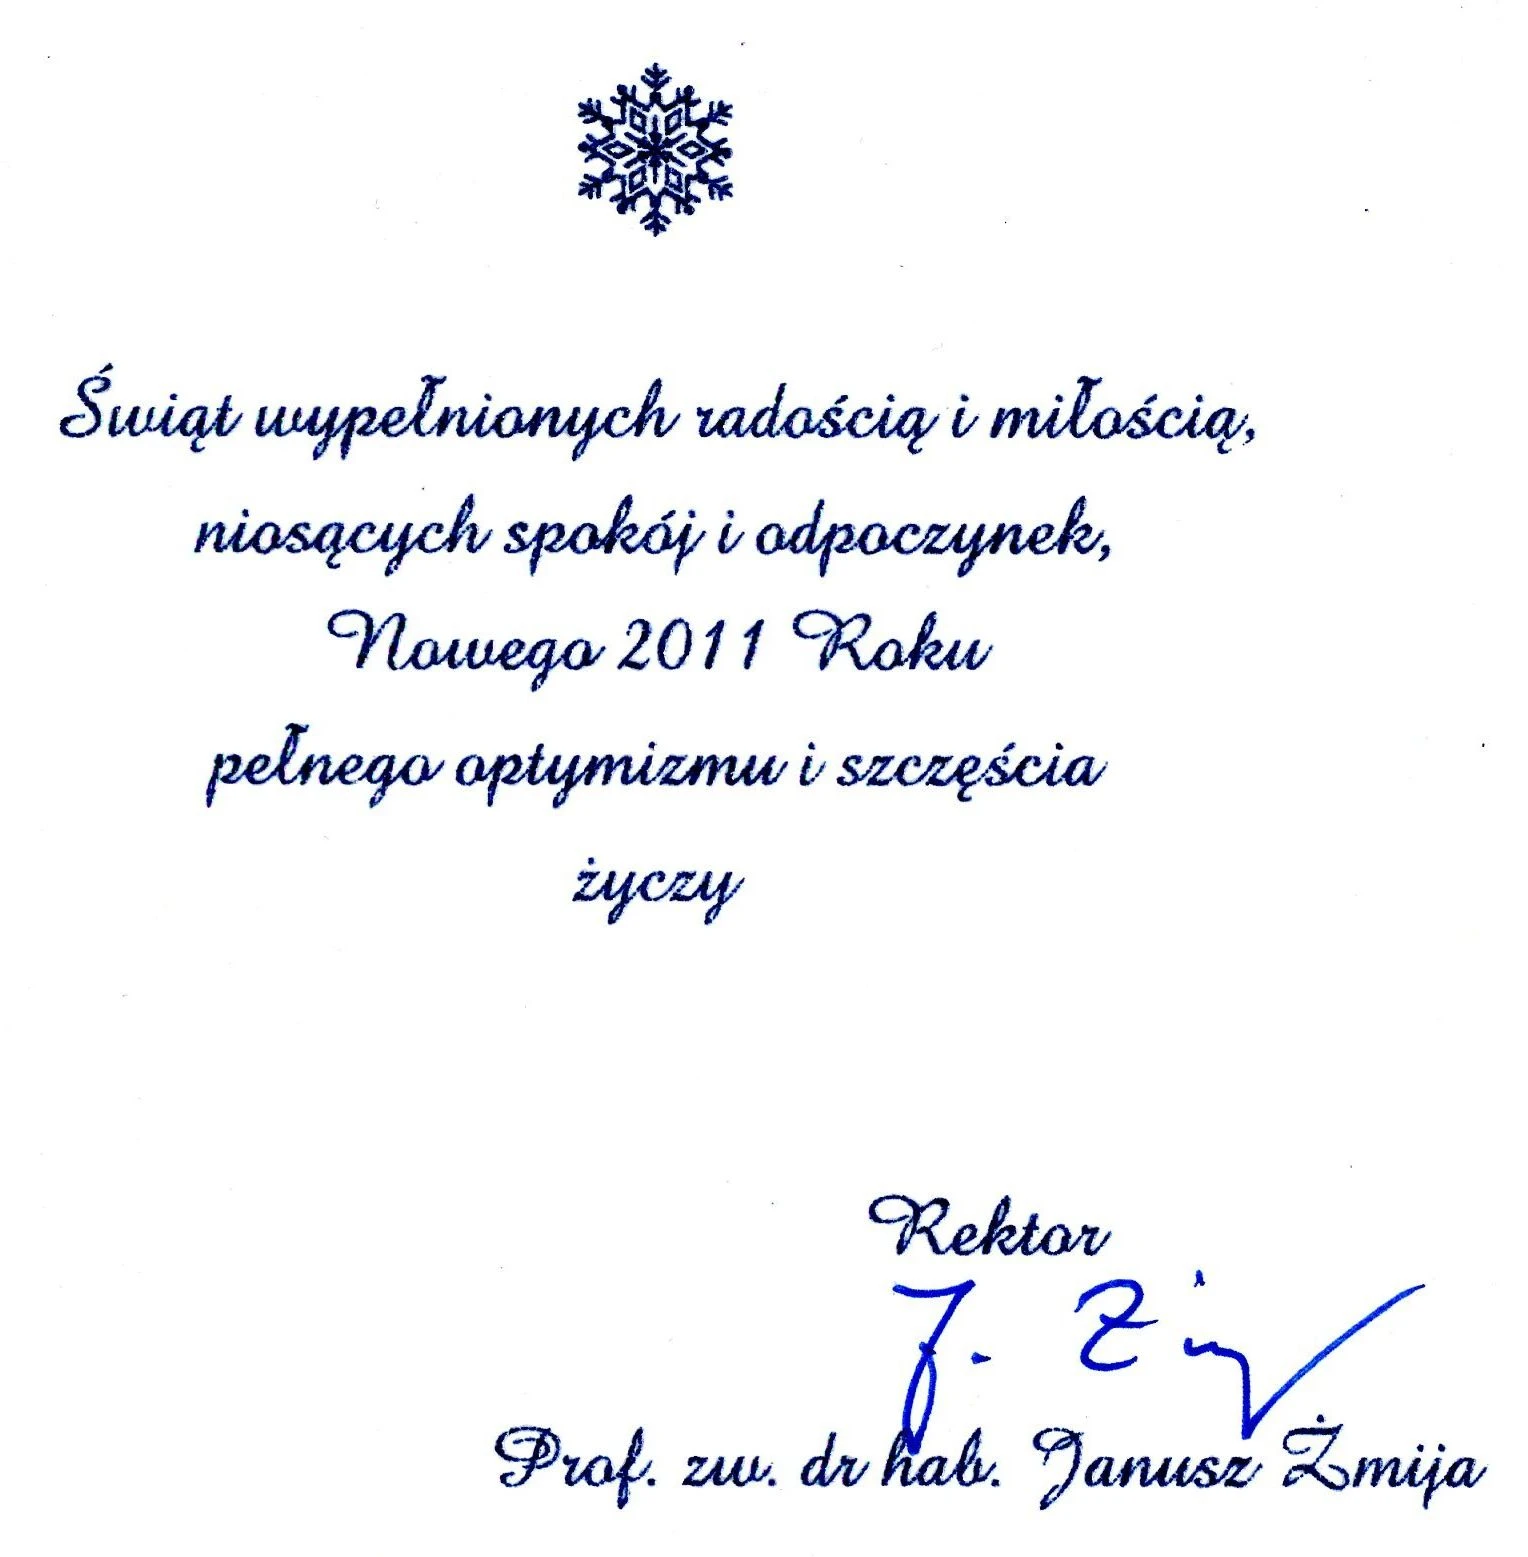 Świąt wypełnionych radością i miłością,
niosących spokój i odpoczynek,
Nowego 2011 Roku
pełnego optymizmu i szczęścia
życzy
Rektor
J. Żmij
Prof. zw. dr hab. Janusz Żmija